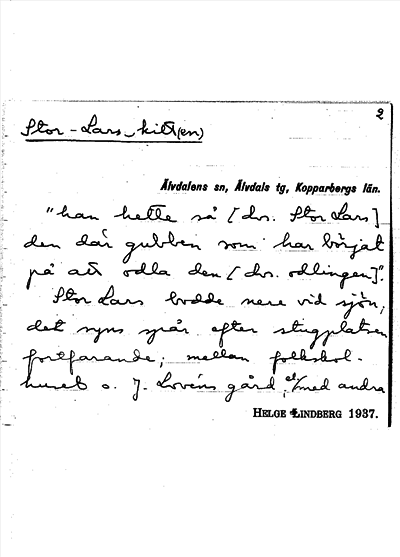 2
Stor-Lars-kitt(en)
Älvdalens sn, Älvdals tg, Kopparbergs län.
"han hette så [dvs. Stor Lars]
den där gubben som har börjat
på att odla den [dvs. odlingen]".
Stor Lars bodde nere vid sjön;
det syns spår efter stugplatsen
fortfarande, mellan folkskol-
huset o. J. Lovéns gård, el/med andra
HELGE LINDBERG 1937.